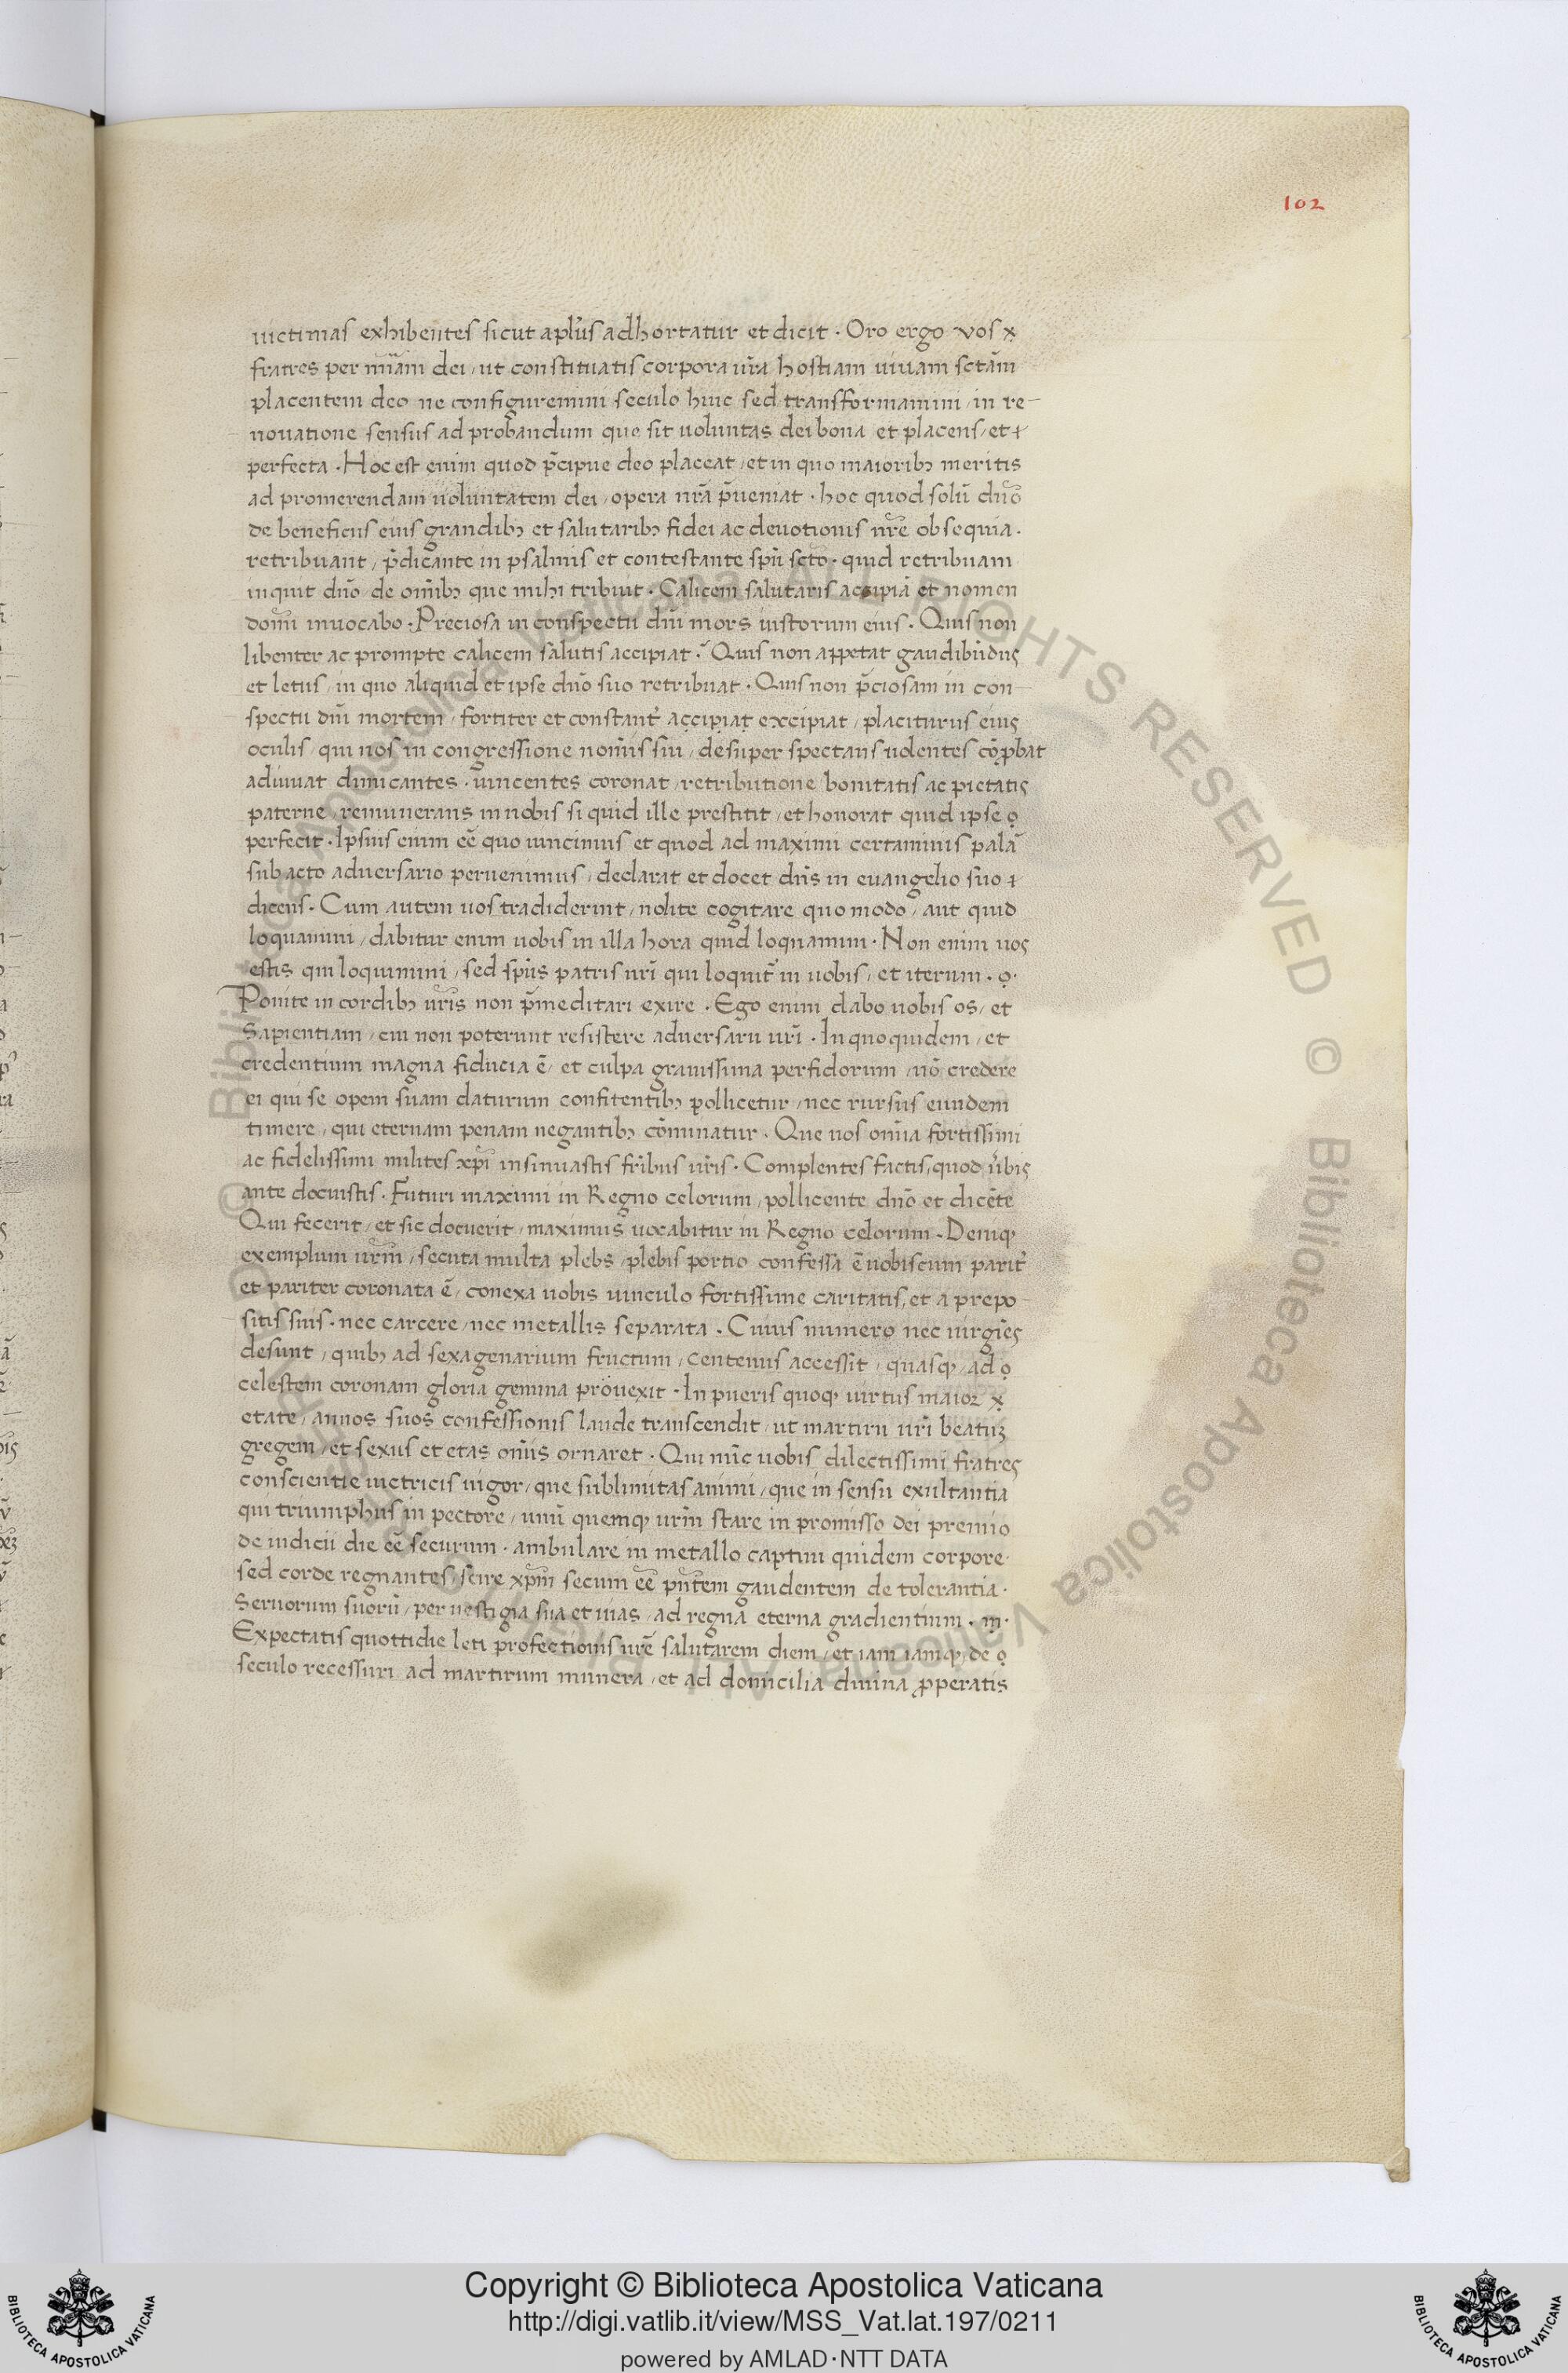 102
uictimas exhibentes sicut aplus adhortatur et dicit · Oro ergo vos x
fratres per miam dei / ut constituatis corpora ura hostiam uiuam sctam
placentem deo ne configuremini seculo huic sed transformamini / in re-
nouatione sensus ad probandum que sit uoluntas dei bona et placens / et
perfecta · Hoc est enim quod p̄cipue deo placeat / et in quo maiorib; meritis
ad promerendam uoluntatem dei / opera nrā p̄ueniat · hoc quod solū dno
de beneficiis eius grandib; et salutarib; fidei ac deuotionis nrē obsequia ·
retribuant / p̄dicante in psalmis et contestante spū scto · quid retribuam
inquit dno de omib; que mihi tribuit · Calicem salutaris accipiā et nomen
domi inuocabo · Preciosa in conspectu dni mors iustorum eius · Quis non
libenter ac prompte calicem salutis accipiat · Quis non appetat gaudibūdus
et letus / in quo aliquid et ipse dno suo retribuat · Quis non p̄ciosam in con-
spectu dni mortem / fortiter et constant̄ accipiat excipiat / placiturus eius
oculis / qui nos in congressione nomis sui / desuper spectans uolentes cōp̱bat
adiuuat dimicantes · uincentes coronat / retributione bonitatis ac pietatis
paterne / remunerans in nobis si quid ille prestitit / et honorat quid ipse
perfecit · Ipsius enim eē quo uincimus et quod ad maximi certaminis palā
subacto aduersario peruenimus / declarat et docet dns in euangelio suo
dicens · Cum autem uos tradiderint / nolite cogitare quo modo / aut quid
loquamini / dabitur enim uobis in illa hora quid loquamini · Non enim uos
estis qui loquimini / sed spūs patris uri qui loquit̄ in uobis / et iterum ·
Ponite in cordib; uris non p̄meditari exire · Ego enim dabo uobis os / et
Sapientiam / cui non poterunt resistere aduersarii uri · In quo quidem / et
credentium magna fiducia ē / et culpa grauissima perfidorum / nō credere
ei qui se opem suam daturum confitentib; pollicetur / nec rursus eundem
timere / qui eternam penam negantib; cōminatur · Que uos omia fortissimi
ac fidelissimi milites xpi insinuastis fribus uris · Complentes factis, quod ūbis
ante docuistis · Futuri maximi in Regno celorum / pollicente dno et dicēte
Qui fecerit / et sic docuerit / maximus uocabitur in Regno celorum · Deniq;
exemplum urm / secuta multa plebs / plebis portio confessa ē uobiscum parit̄
et pariter coronata ē / conexa uobis uinculo fortissime caritatis, et a prepo-
sitis suis · nec carcere / nec metallis separata · Cuius numero nec uirgies
desunt / quib; ad sexagenarium fructum / centenus accessit / quasq; / ad
celestem coronam gloria gemina prouexit · In pueris quoq; uirtus maior x
etate / annos suos confessionis laude transcendit / ut martirii uri beatuz
gregem / et sexus et etas omis ornaret · Qui nūc uobis dilectissimi fratres
conscientie uictricis uigor / que sublimitas animi / que in sensu exultantia
qui triumphus in pectore / unū quemq; urm stare in promisso dei premio
de iudicii die eē securum · ambulare in metallo captiui quidem corpore ·
sed corde regnantes / scire xpm secum eē pntem gaudentem de tolerantia ·
Seruorum suorū / per uestigia sua et uias / ad regna eterna gradientium ·
Expectatis quottidie leti profectionis urē salutarem diem / et iam iamq; de
seculo recessuri ad martirum munera / et ad domicilia diuina properatis
© Biblioteca Apostolica Vaticana ALL RIGHTS RESERVED
Copyright © Biblioteca Apostolica Vaticana
http://digi.vatlib.it/view/MSS_Vat.lat.197/0211
powered by AMLAD·NTT DATA
BIBLIOTECA APOSTOLICA VATICANA
BIBLIOTECA APOSTOLICA VATICANA